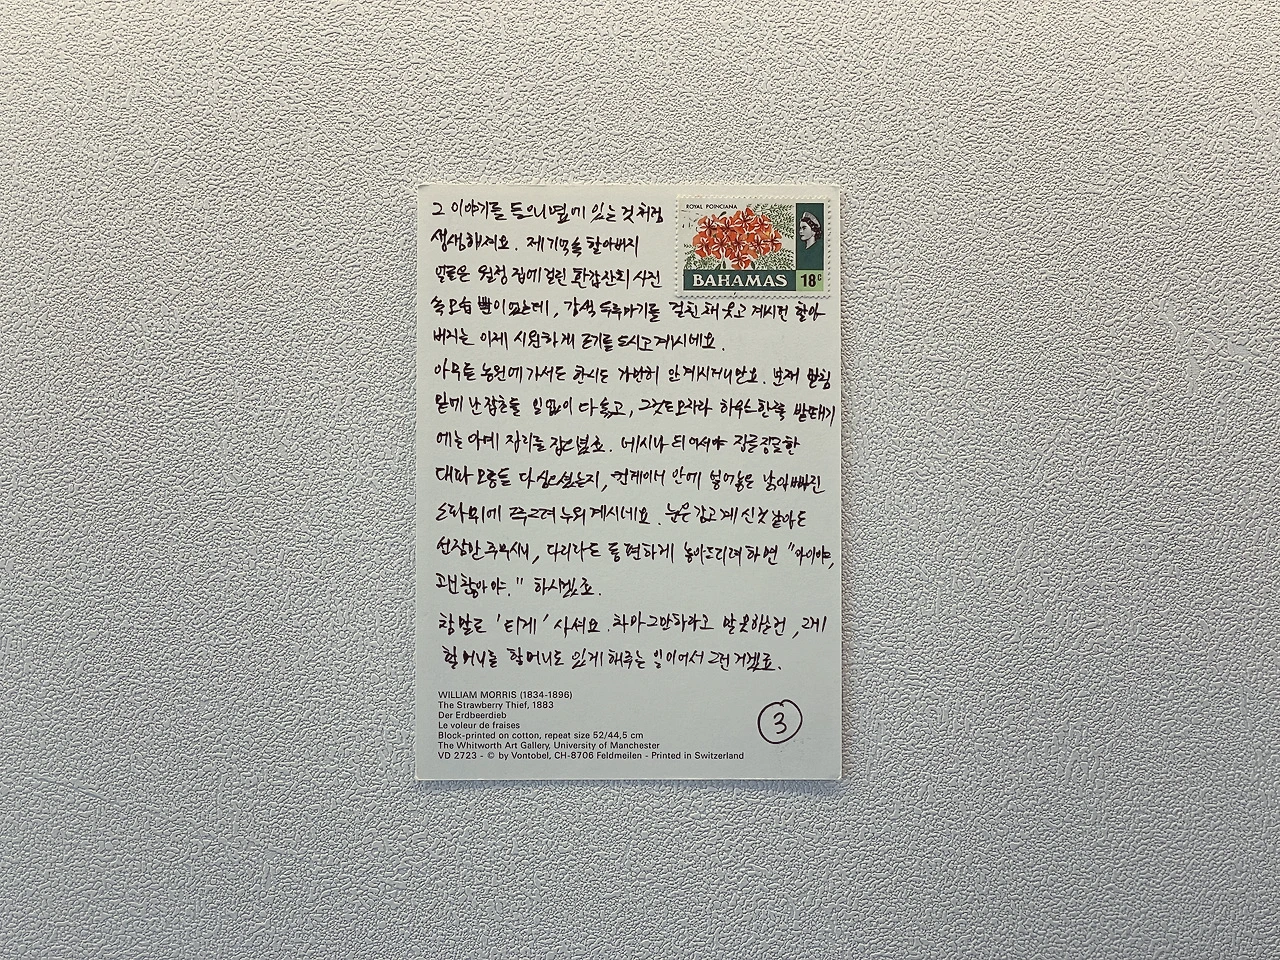 그 이야기를 들으니 옆에 있는 것처럼
생생해져요. 제 기억 속 할아버지
얼굴은 월정 집에 걸린 환갑잔치 사진
속 모습 뿐이었는데, 갈색 두루마기를 걸친 채 웃고 계시던 할아
버지는 이제 시원하게 모기를 드시고 계시네요.
아무튼 농원에 가서도 한시도 가만히 안 계시더니만요. 먼저
밑에 난 잡초들 일없이 다 솎고, 그것도 모자라 하우스 한쪽 밭뙈기
에는 아예 자리를 잡으셨죠. 네시나 되어서야
대파 모종을 다 심으셨는지, 컨테이너 안에 넣어놓은 낡아빠진
소파 위에 쭈그려 누워 계시네요. 눈은 감고 계신 것 같아도
선잠만 주무시니, 다리라도 좀 편하게 놓아드리려 하면 "아이야,
괜찮아야." 하시겠죠.
참말로 '되게' 사셔요. 차마 그만하라고 말 못하는 건, 그게
할머니를 할머니로 있게 해주는 일이어서 그런 거겠죠.
ROYAL POINCIANA
BAHAMAS 18c
WILLIAM MORRIS (1834-1896)
The Strawberry Thief, 1883
Der Erdbeerdieb
Le voleur de fraises
Block-printed on cotton, repeat size 52/44,5 cm
The Whitworth Art Gallery, University of Manchester
VD 2723 - © by Vontobel, CH-8706 Feldmeilen - Printed in Switzerland
3